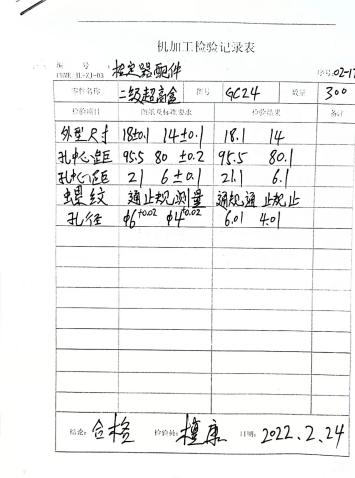 机加工检验记录表
编 号: 检定器配件
序号:02-17
零件名称 二级超高盒 图号 GC24 数量 300
检验项目 图纸及标准要求 检验结果 备注
外型尺寸 18±0.1 14±0.1 18.1 14
孔中心距 95.5 80 ±0.2 95.5 80.1
孔中心距 21 6±0.1 21.1 6.1
螺纹 通止规测量 通规通 止规止
孔径 Φ6+0.02 Φ4+0.02 6.01 4.01
结论: 合格 检验员: 日期: 2022.2.24